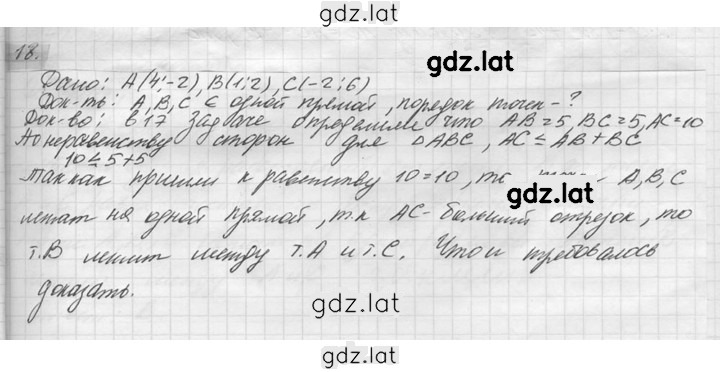 gdz.lat
18.
gdz.lat
Дано: A(4;-2), B(1;2), C(-2;6)
Док-ть: A,B,C ∈ одной прямой, порядок точек-?
Док-во: в 17 задаче определили что AB=5, BC=5, AC=10
По неравенству сторон для △ABC, AC ≤ AB+BC
10≤5+5
так как пришли к равенству 10=10, то - A,B,C
gdz.lat
лежат на одной прямой, т.к AC- больший отрезок, то
т.B лежит между т.A и т.C. Что и требовалось
доказать.
gdz.lat
gdz.lat